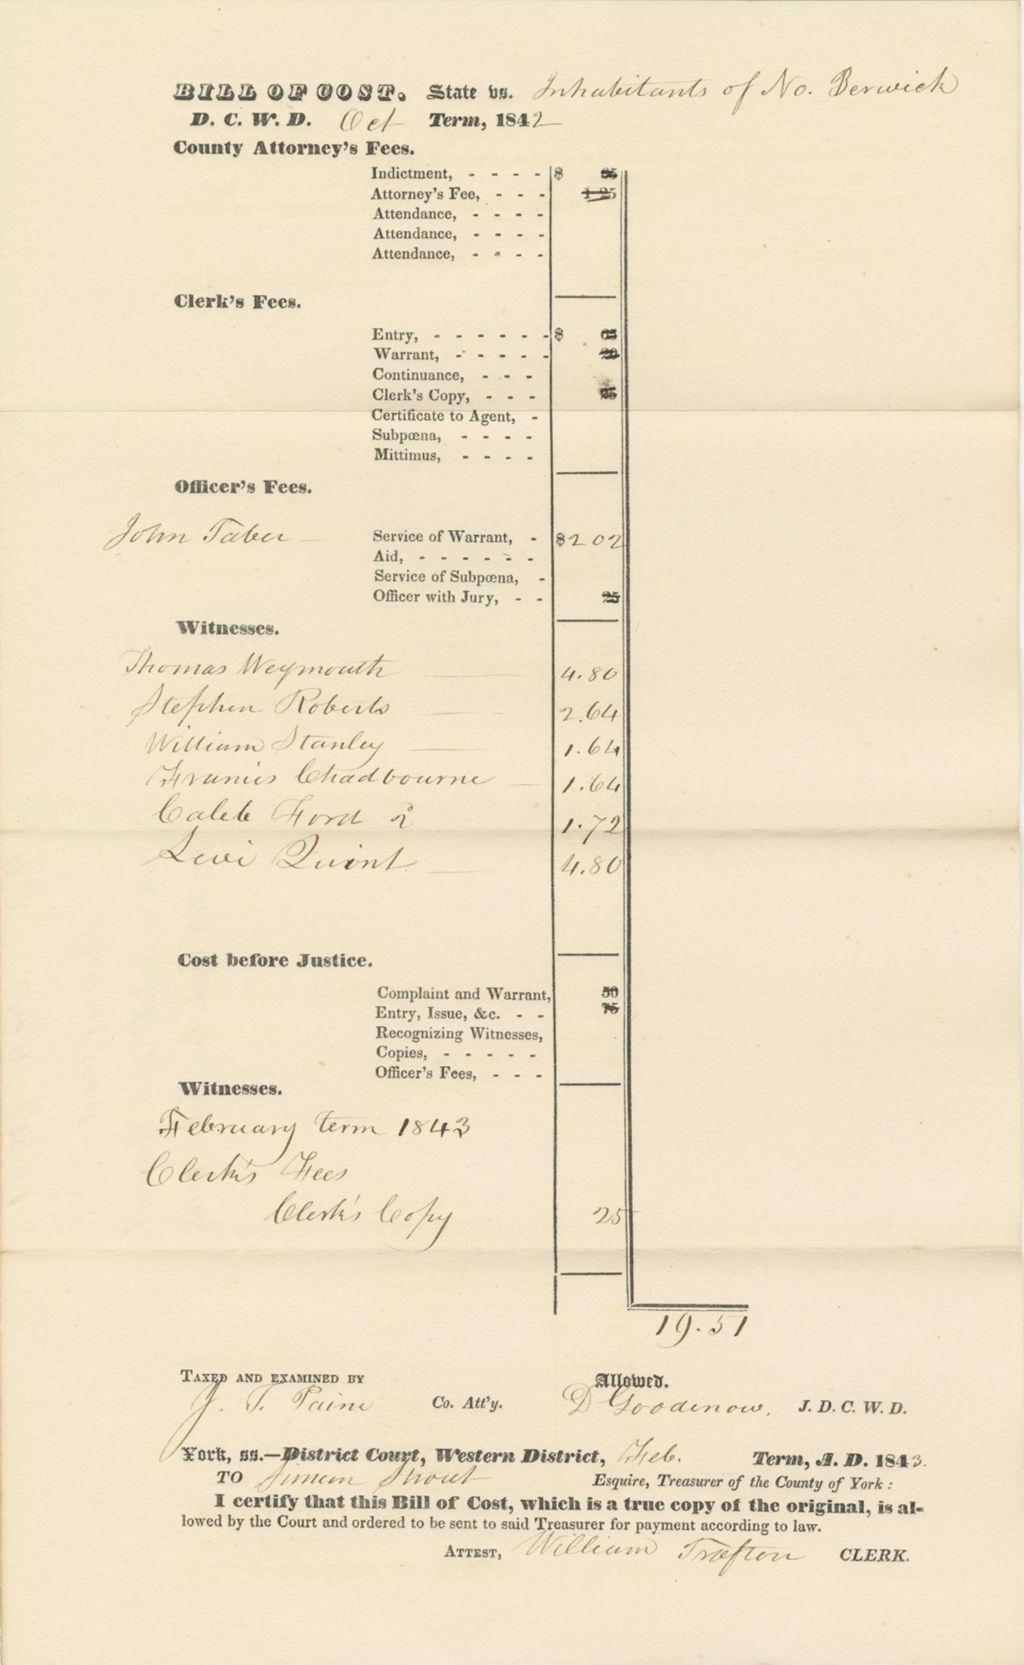 BILL OF COST. State vs. Inhabitants of No. Berwick
D. C. W. D. Oct Term, 1842
County Attorney's Fees.
Indictment, - - - - $
Attorney's Fee, - - - 1 25
Attendance, - - - -
Attendance, - - - -
Attendance, - - - -
Clerk's Fees.
Entry, - - - - - - $
Warrant, - - - - -
Continuance, - - -
Clerk's Copy, - - -
Certificate to Agent, -
Subpœna, - - - -
Mittimus, - - - -
Officer's Fees.
John Taber — Service of Warrant, - $2 02
Aid, - - - - - -
Service of Subpœna, -
Officer with Jury, - - 25
Witnesses.
Thomas Weymouth — 4.80
Stephen Roberts — 2.64
William Stanley — 1.64
Francis Chadbourne — 1.64
Caleb Ford 2 1.72
Levi Quint — 4.80
Cost before Justice.
Complaint and Warrant, 50
Entry, Issue, &c. - - 75
Recognizing Witnesses,
Copies, - - - - -
Officer's Fees, - - -
Witnesses.
February term 1843
Clerk's Fees
Clerk's Copy 25
19.51
TAXED AND EXAMINED BY Allowed.
J. T. Paine Co. Att'y. D Goodenow. J. D. C. W. D.
York, ss.—District Court, Western District, Feb. Term, A. D. 1843.
TO Simeon Strout Esquire, Treasurer of the County of York :
I certify that this Bill of Cost, which is a true copy of the original, is al-
lowed by the Court and ordered to be sent to said Treasurer for payment according to law.
ATTEST, William Trafton CLERK.